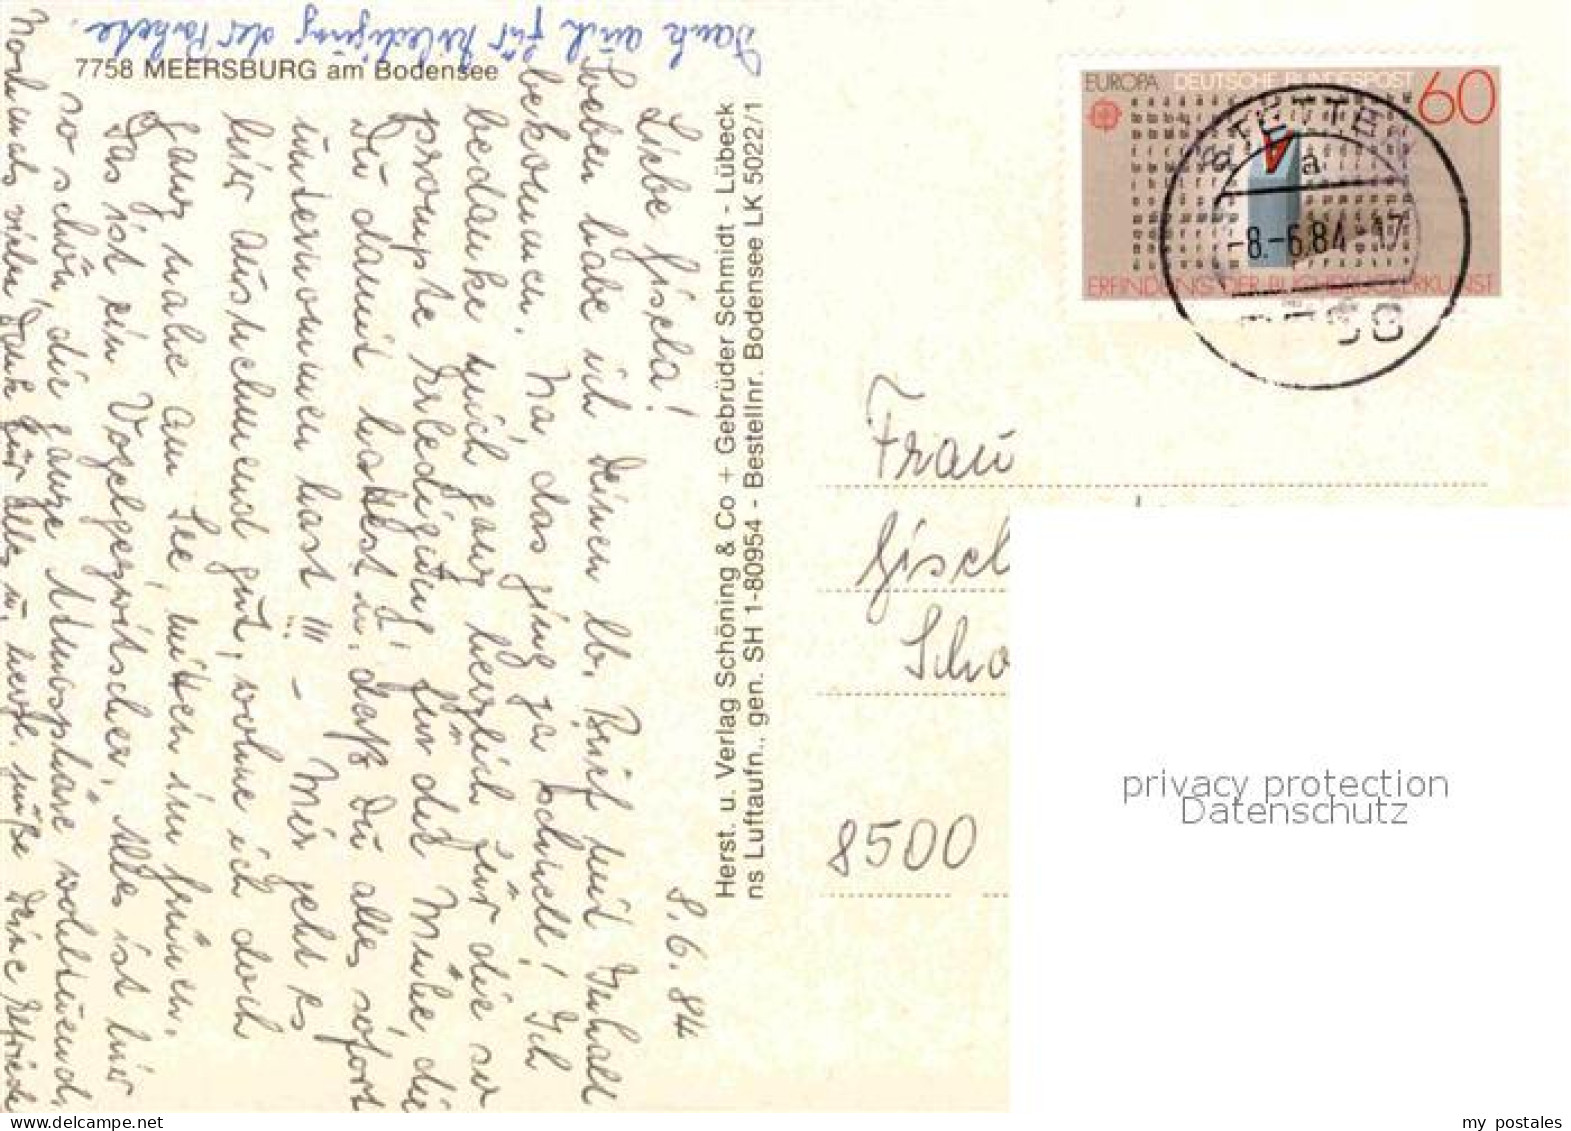 8.6.84
Liebe Gisela!
Soeben habe ich Deinen lb. Brief mit Inhalt
bekommen. Na, das ging ja schnell! Ich
bedanke mich ganz herzlich für die so
prompte Erledigung für die Mühe, die
Du damit hattest u. daß Du alles sofort
unternommen hast!!! – Mir geht es
hier ausnehmend gut, wohne ich doch
ganz nahe am See mitten im Grünen.
Das ist ein Vogelgezwitscher, Alles ist hier
so schön, die ganze Atmosphäre wohltuend.
Nochmals vielen Dank für Alles u. herzl. Grüße Deine Elfriede
Dank auch für Erledigung der Pakete.
7758 MEERSBURG am Bodensee
Herst. u. Verlag Schöning & Co + Gebrüder Schmidt - Lübeck
ns Luftaufn., gen. SH 1-80954 - Bestellnr. Bodensee LK 5022/1
EUROPA DEUTSCHE BUNDESPOST 60
ERFINDUNG DER BUCHDRUCKERKUNST
a
-8.-6.84-17
Frau
Gisel
Scho
8500
privacy protection
Datenschutz
my postales